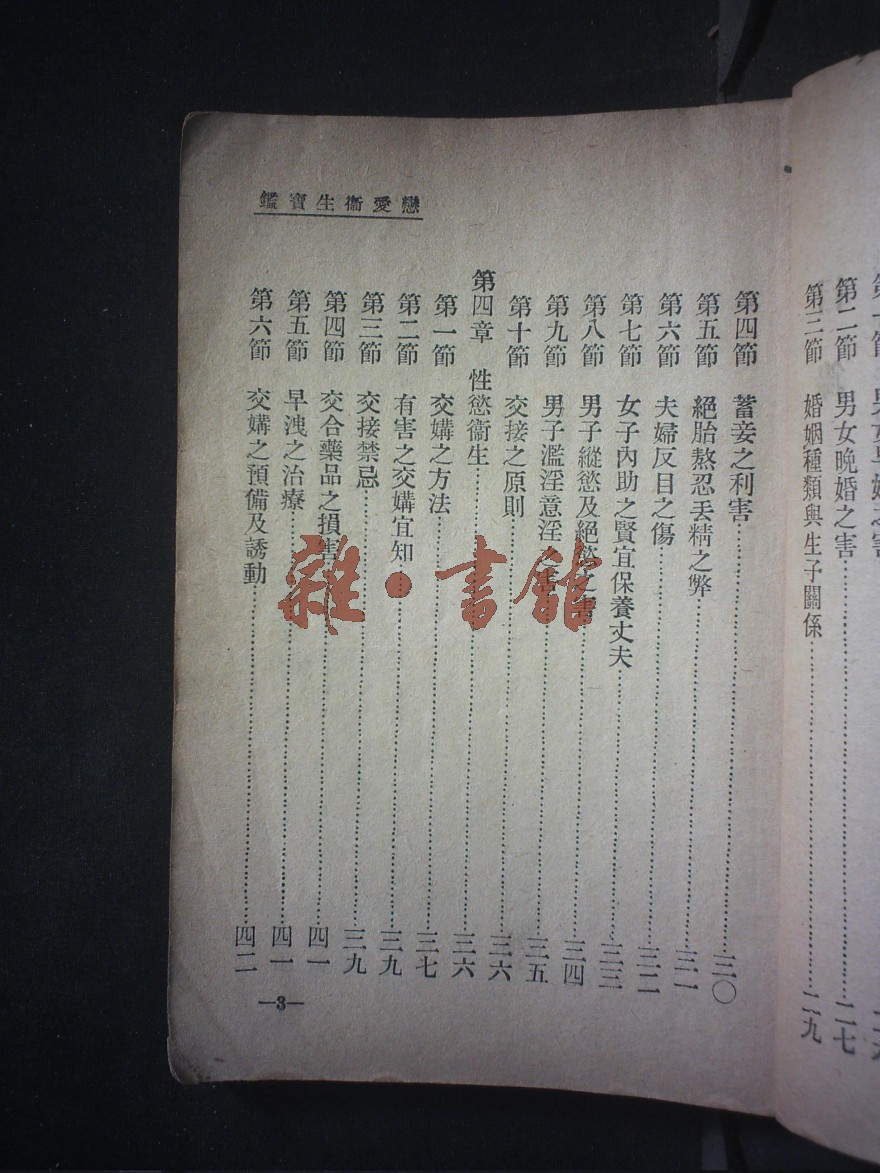 第二節 男女晚婚之害……二七
第三節 婚姻種類與生子關係……二九
戀愛衛生寶鑑
第四節 蓄妾之利害……三〇
第五節 絕胎熬忍丟精之弊……三一
第六節 夫婦反目之傷……三二
第七節 女子內助之賢宜保養丈夫……三三
第八節 男子縱慾及絕慾之害……三四
第九節 男子濫淫意淫之……三五
第十節 交接之原則……三六
第四章 性慾衛生……三六
第一節 交媾之方法……三七
第二節 有害之交媾宜知……三九
第三節 交接禁忌……三九
第四節 交合藥品之損害……四一
第五節 早洩之治療……四一
第六節 交媾之預備及誘動……四二
—3—
雜·書館